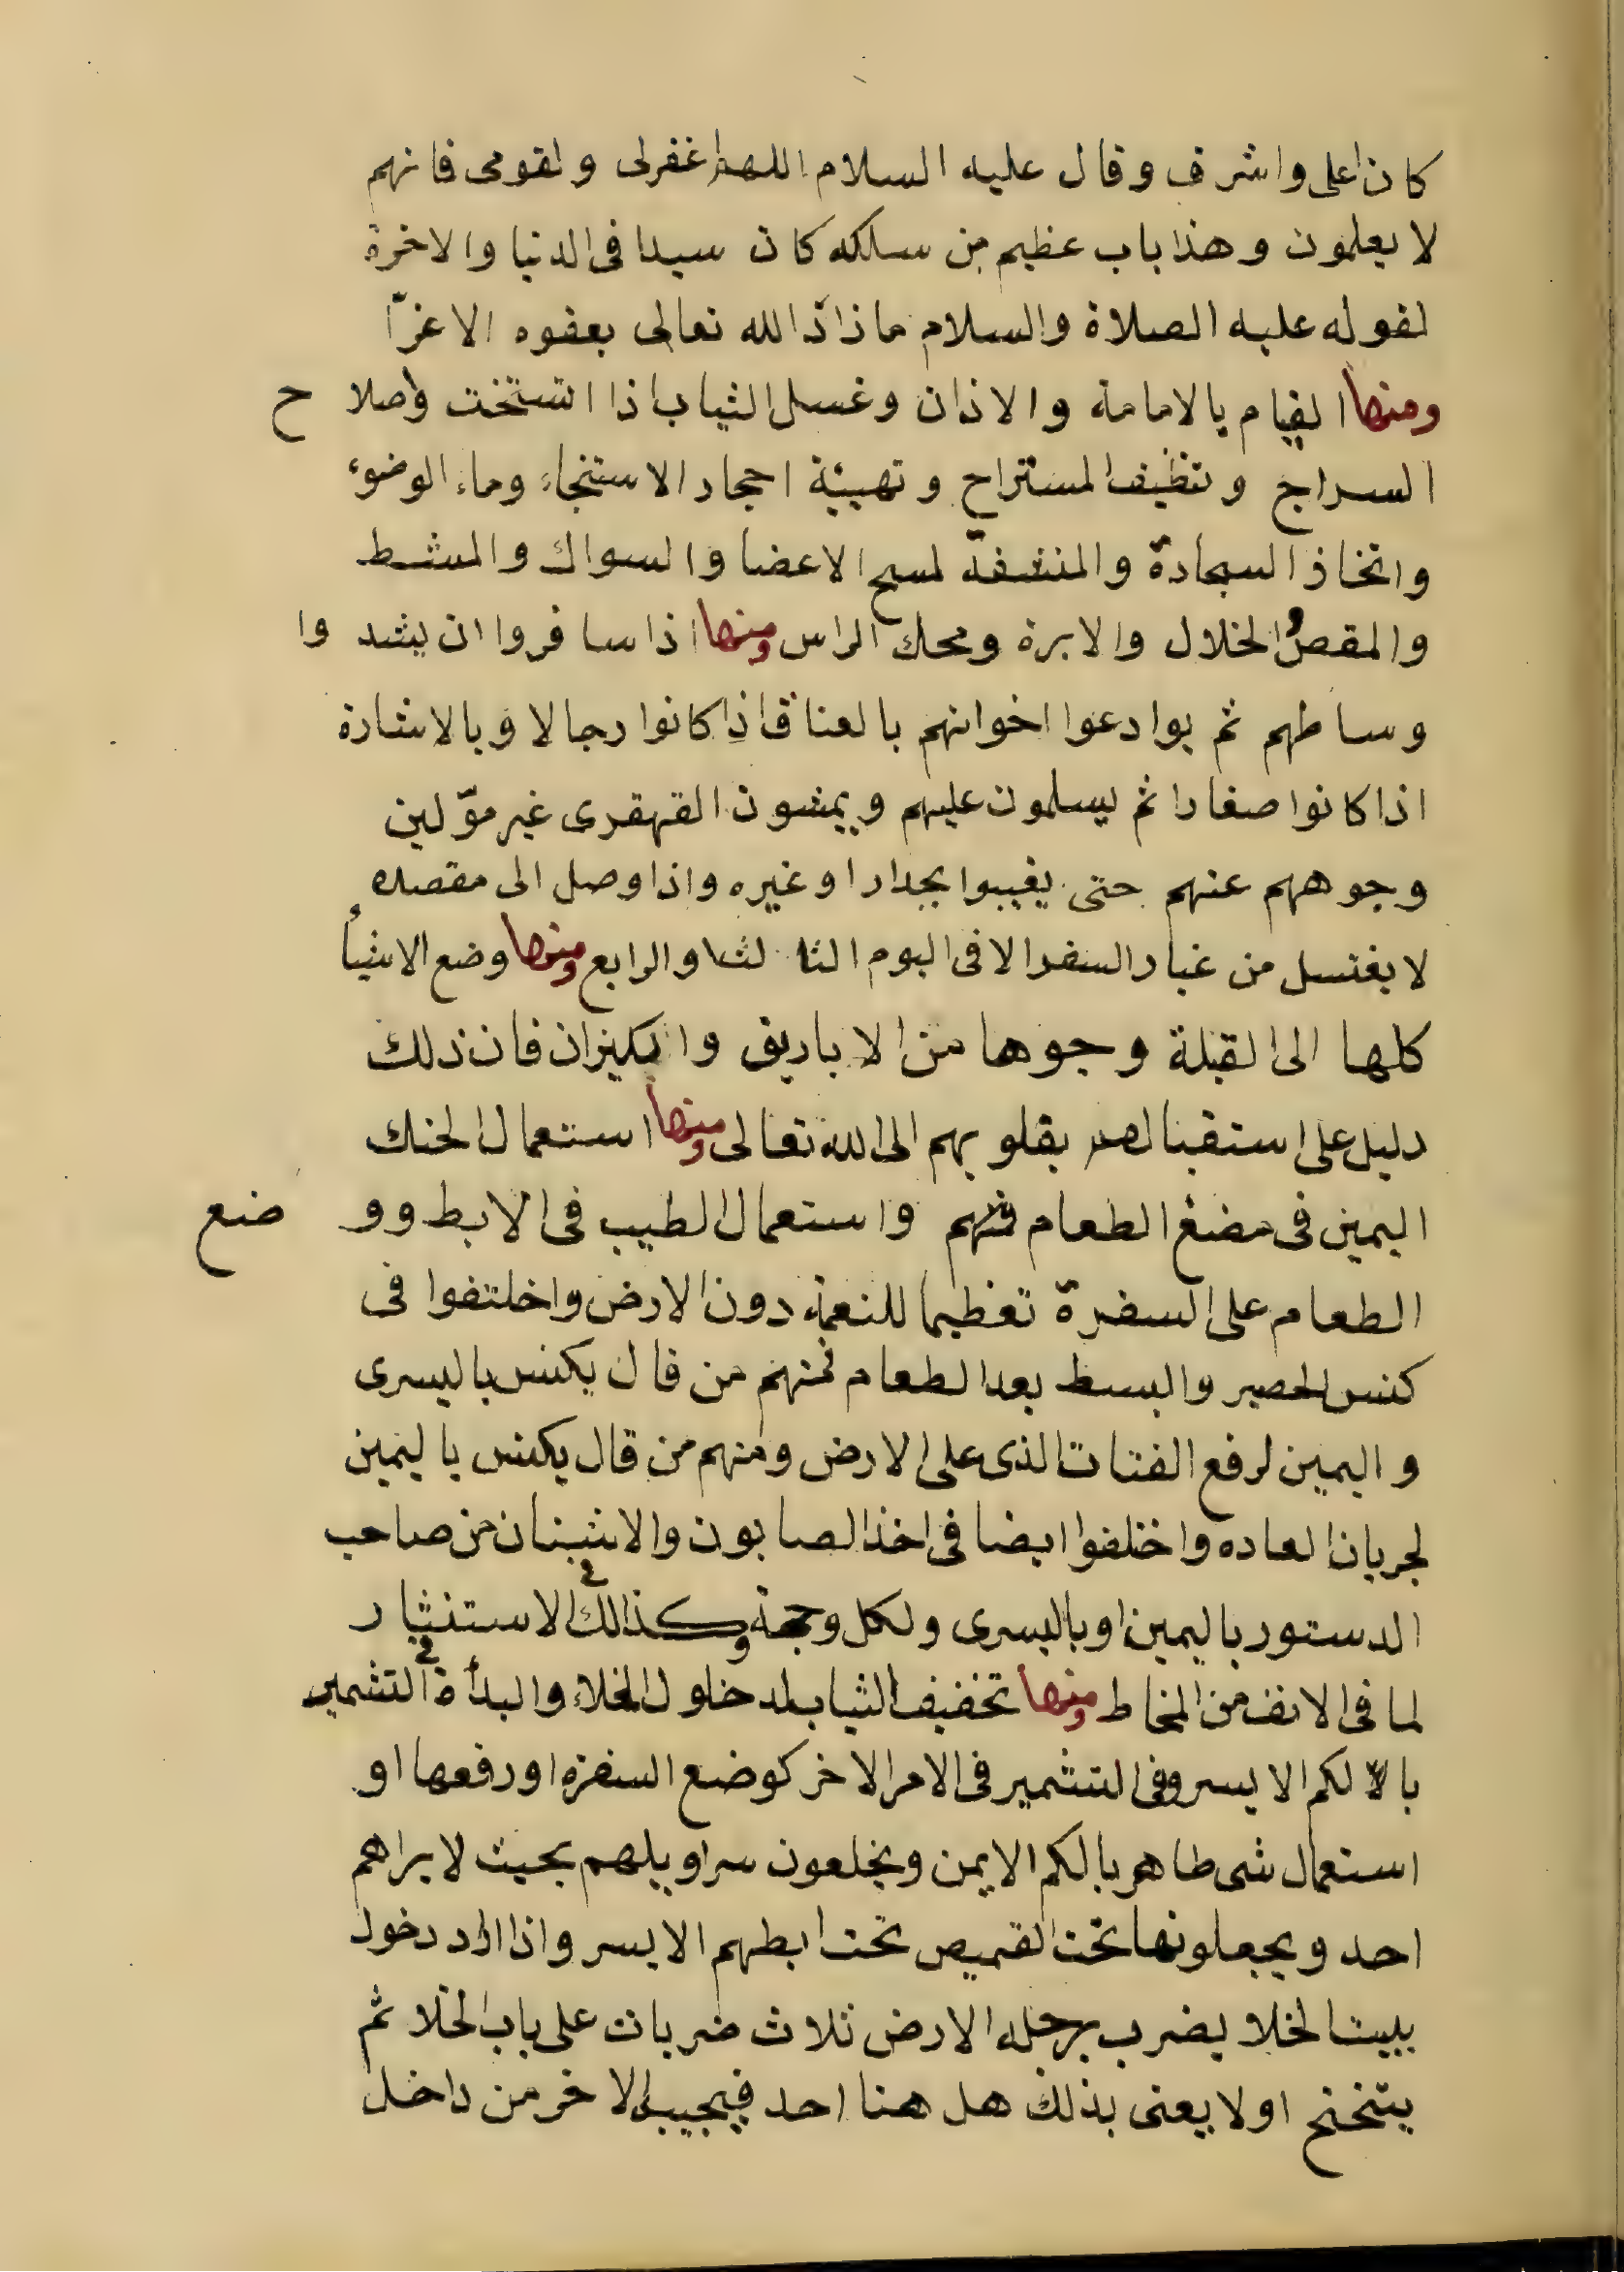 كان اعلى واشرف وقال عليه السلام اللهم اغفرلى ولقومى فانهم
لا يعلمون وهذا باب عظيم من سلكه كان سيدا فى الدنيا والاخرة
لقوله عليه الصلاة والسلام ما زاد الله تعالى بعفوه الا عزّا
ومنها القيام بالامامة والاذان وغسل الثياب اذا اتسخت واصلاح
السراج وتنظيف المستراح وتهيئة احجار الاستنجاء وماء الوضوء
واتخاذ السجادة والمنشفة لمسح الاعضا والسواك والمشط
والمقص والخلال والابرة ومحك الراس ومنها اذا سافروا ان يشدوا
وساطهم ثم يوادعوا اخوانهم بالعناق اذا كانوا رجالا وبالاشارة
اذا كانوا صغارا ثم يسلمون عليهم ويمشون القهقرى غير مولّين
وجوههم عنهم حتى يغيبوا بجدار او غيره واذا وصل الى مقصده
لا يغتسل من غبار السفر الا فى اليوم الثالث والرابع ومنها وضع الاشيأ
كلها الى القبلة وجوها من الاباريق والكيزان فان ذلك
دليل على استقبالهم بقلوبهم الى الله تعالى ومنها استعمال الحنك
اليمين فى مضغ الطعام منهم واستعمال الطيب فى الابط ووضع
الطعام على السفرة تعظيما للنعمة دون الارض واختلفوا فى
كنس الحصير والبسط بعد الطعام فمنهم من قال يكنس باليسرى
واليمين لرفع الفتات الذى على الارض ومنهم من قال يكنس باليمين
لجريان العاده واختلفوا ايضا فى اخذ الصابون والاشنان من صاحب
الدستور باليمين او باليسرى ولكل وجهة وكذالك فى الاستنثار
لما فى الانف من المخاط ومنها تخفيف الثياب لدخول الخلاء والبدأة فى التشمير
بالكم الايسر وفى التشمير فى الامر الاخر كوضع السفره او رفعها او
استعمال شى طاهر بالكم الايمن ويخلعون سراويلهم بحيث لا يراهم
احد ويجعلونها تحت القميص تحت ابطهم الايسر واذا اراد دخول
بيت الخلا يضرب برجله الارض ثلاث ضربات على باب الخلا ثم
يتنحنح اولا يعنى بذلك هل هنا احد فيجيب الاخر من داخل